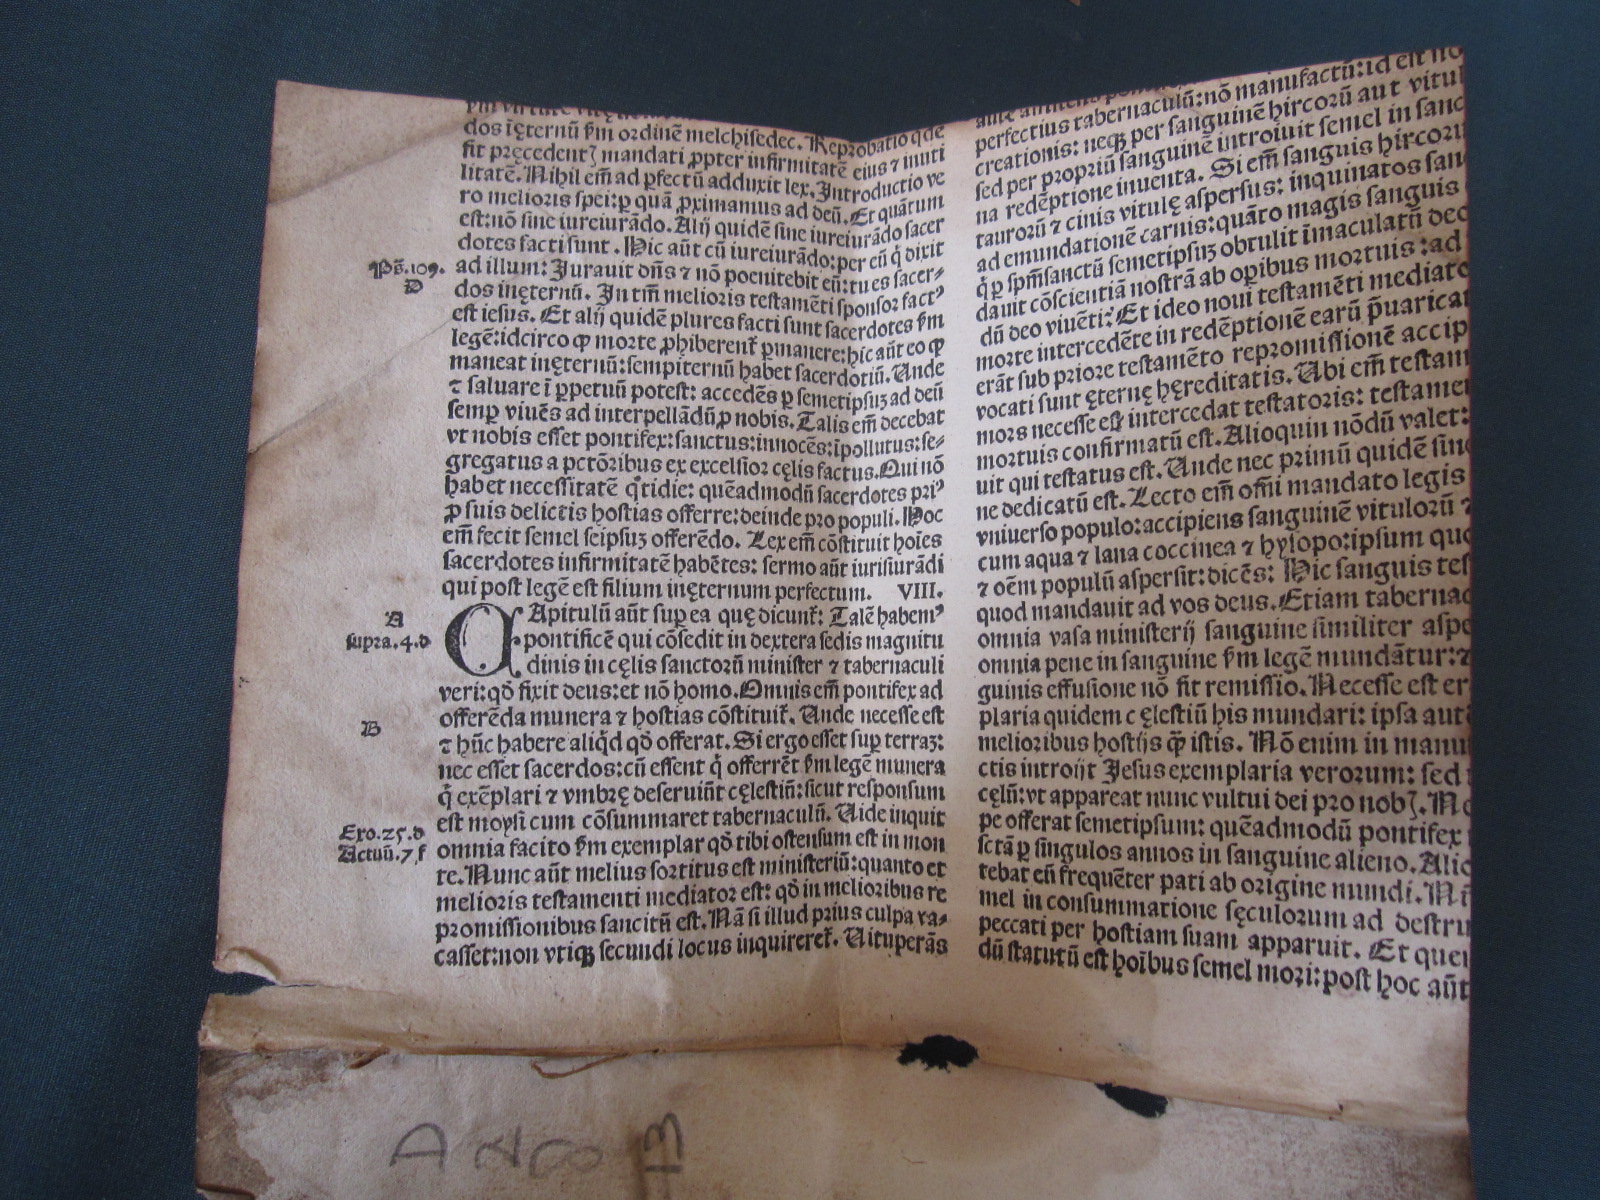 dos īęternū ẜm ordinē melchisedec. Reprobatio q̄de
fit pręcedentꝫ mandati ꝓpter infirmitatē eius ⁊ inuti
litatē. Nihil em̄ ad ꝑfectū adduxit lex. Introductio ve
ro melioris spei: ꝑ quā ꝓximamus ad deū. Et quātum
est: nō sine iureiurādo. Alij quidē sine iureiurādo sacer
dotes facti sunt. Hic aūt cū iureiurādo: per eū q̇ dixit
Ps̄. 109.
D
ad illum: Jurauit dn̄s ⁊ nō poenitebit eū: tu es sacer-
dos inęternū. In tm̄ melioris testamēti sponsor factꝰ
est iesus. Et alij quidē plures facti sunt sacerdotes ẜm
legē: idcirco ꝙ morte ꝓhiberent̄ ꝑmanere: hic aūt eo ꝙ
maneat inęternū: sempiternū habet sacerdotiū. Unde
⁊ saluare ī ꝑpetuū potest: accedēs ꝑ semetipsuꝫ ad deū
semꝑ viuēs ad interpellādū ꝓ nobis. Talis em̄ decebat
vt nobis esset pontifex: sanctus: innocēs: īpollutus: se-
gregatus a pctōribus ex excelsior cęlis factus. Qui nō
habet necessitatē q̇tidie: quēadmodū sacerdotes priꝰ
ꝓ suis delictis hostias offerre: deinde pro populi. Hoc
em̄ fecit semel seipsuꝫ offerēdo. Lex em̄ cōstituit hoīes
sacerdotes infirmitatē habētes: sermo aūt iurisiurādi
qui post legē est filium inęternum perfectum. VIII.
A
supra. 4. d
CApitulū aūt suꝑ ea quę dicunt̄: Talē habemꝰ
pontificē qui cōsedit in dextera sedis magnitu
dinis in cęlis sanctorū minister ⁊ tabernaculi
veri: qd̄ fixit deus: et nō homo. Omnis em̄ pontifex ad
offerēda munera ⁊ hostias cōstituit̄. Unde necesse est
B
⁊ hūc habere aliq̇d qd̄ offerat. Si ergo esset suꝑ terraꝫ:
nec esset sacerdos: cū essent q̇ offerrēt ẜm legē munera
q̇ exēplari ⁊ vmbrę deseruiūt cęlestiū: sicut responsum
est moysi cum cōsummaret tabernaculū. Uide inquit
Exo. 25. d
Actuū. 7 f
omnia facito ẜm exemplar qd̄ tibi ostensum est in mon
te. Nunc aūt melius sortitus est ministeriū: quanto et
melioris testamenti mediator est: qd̄ in melioribus re
promissionibus sancitū est. Nā si illud prius culpa va-
casset: non vtiqꝫ secundi locus inquireret̄. Uituperās
perfectius tabernaculū: nō manufactū: id est no
creationis: neqꝫ per sanguinē hircorū aut vitul
sed per propriū sanguinē introiuit semel in sanc
na redēptione inuenta. Si em̄ sanguis hircorū
taurorū ⁊ cinis vitulę aspersus: inquinatos san
ad emundationē carnis: quāto magis sanguis
q̇ ꝑ spm̄sanctū semetipsuꝫ obtulit īmaculatū deo
dauit cōscientiā nostrā ab oꝑibus mortuis: ad
dū deo viuēti? Et ideo noui testamēti mediato
morte intercedēte in redēptionē earū p̄uaricat
erāt sub priore testamēto repromissionē accip
vocati sunt ęternę hęreditatis. Ubi em̄ testam
mors necesse est intercedat testatoris: testamen
mortuis confirmatū est. Alioquin nōdū valet:
uit qui testatus est. Unde nec primū quidē sine
ne dedicatū est. Lecto em̄ om̄i mandato legis
vniuerso populo: accipiens sanguinē vitulorū ⁊
cum aqua ⁊ lana coccinea ⁊ hysopo: ipsum quo
⁊ oēm populū aspersit: dicēs: Hic sanguis tes
quod mandauit ad vos deus. Etiam tabernac
omnia vasa ministerij sanguine similiter aspe
omnia pene in sanguine ẜm legē mundātur: ⁊
guinis effusione nō fit remissio. Necesse est er
plaria quidem cęlestiū his mundari: ipsa aut
melioribus hostijs q̄ istis. Nō enim in manu
ctis introijt Jesus exemplaria verorum: sed
cęlū: vt appareat nunc vultui dei pro nobꝫ. N
pe offerat semetipsum: quēadmodū pontifex
sctā ꝑ singulos annos in sanguine alieno. Alio
tebat eū frequēter pati ab origine mundi. Nū
mel in consummatione sęculorum ad destru
peccati per hostiam suam apparuit. Et quē
dū statutū est hoībus semel mori: post hoc aūt